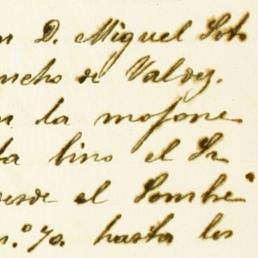 n D. Miguel Soto
ncho de Valdez.
n la mojone
ta lino el Sr
esde el Sombre
n.º 70. hasta los